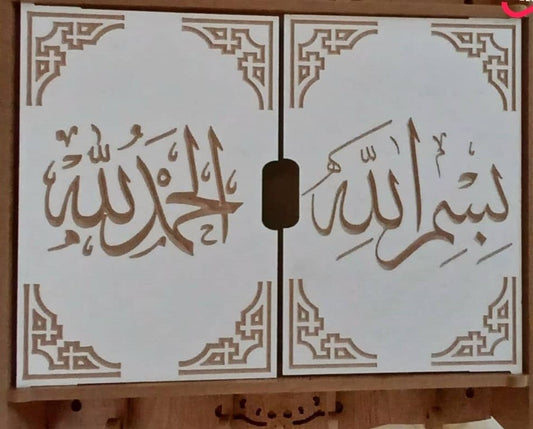 بِسْمِ اللهِ
الحمد لله